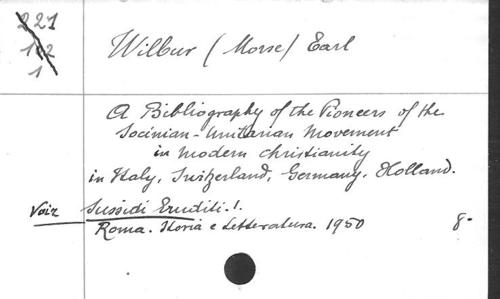 221
112
1
Wilbur (Morse) Earl
A Bibliography of the Pioneers of the
Socinian-Unitarian Movement
in modern christianity
in Italy, Switzerland, Germany. Holland.
Voir Sussidi Eruditi.1.
Roma. Storia e Letteratura. 1950 8-